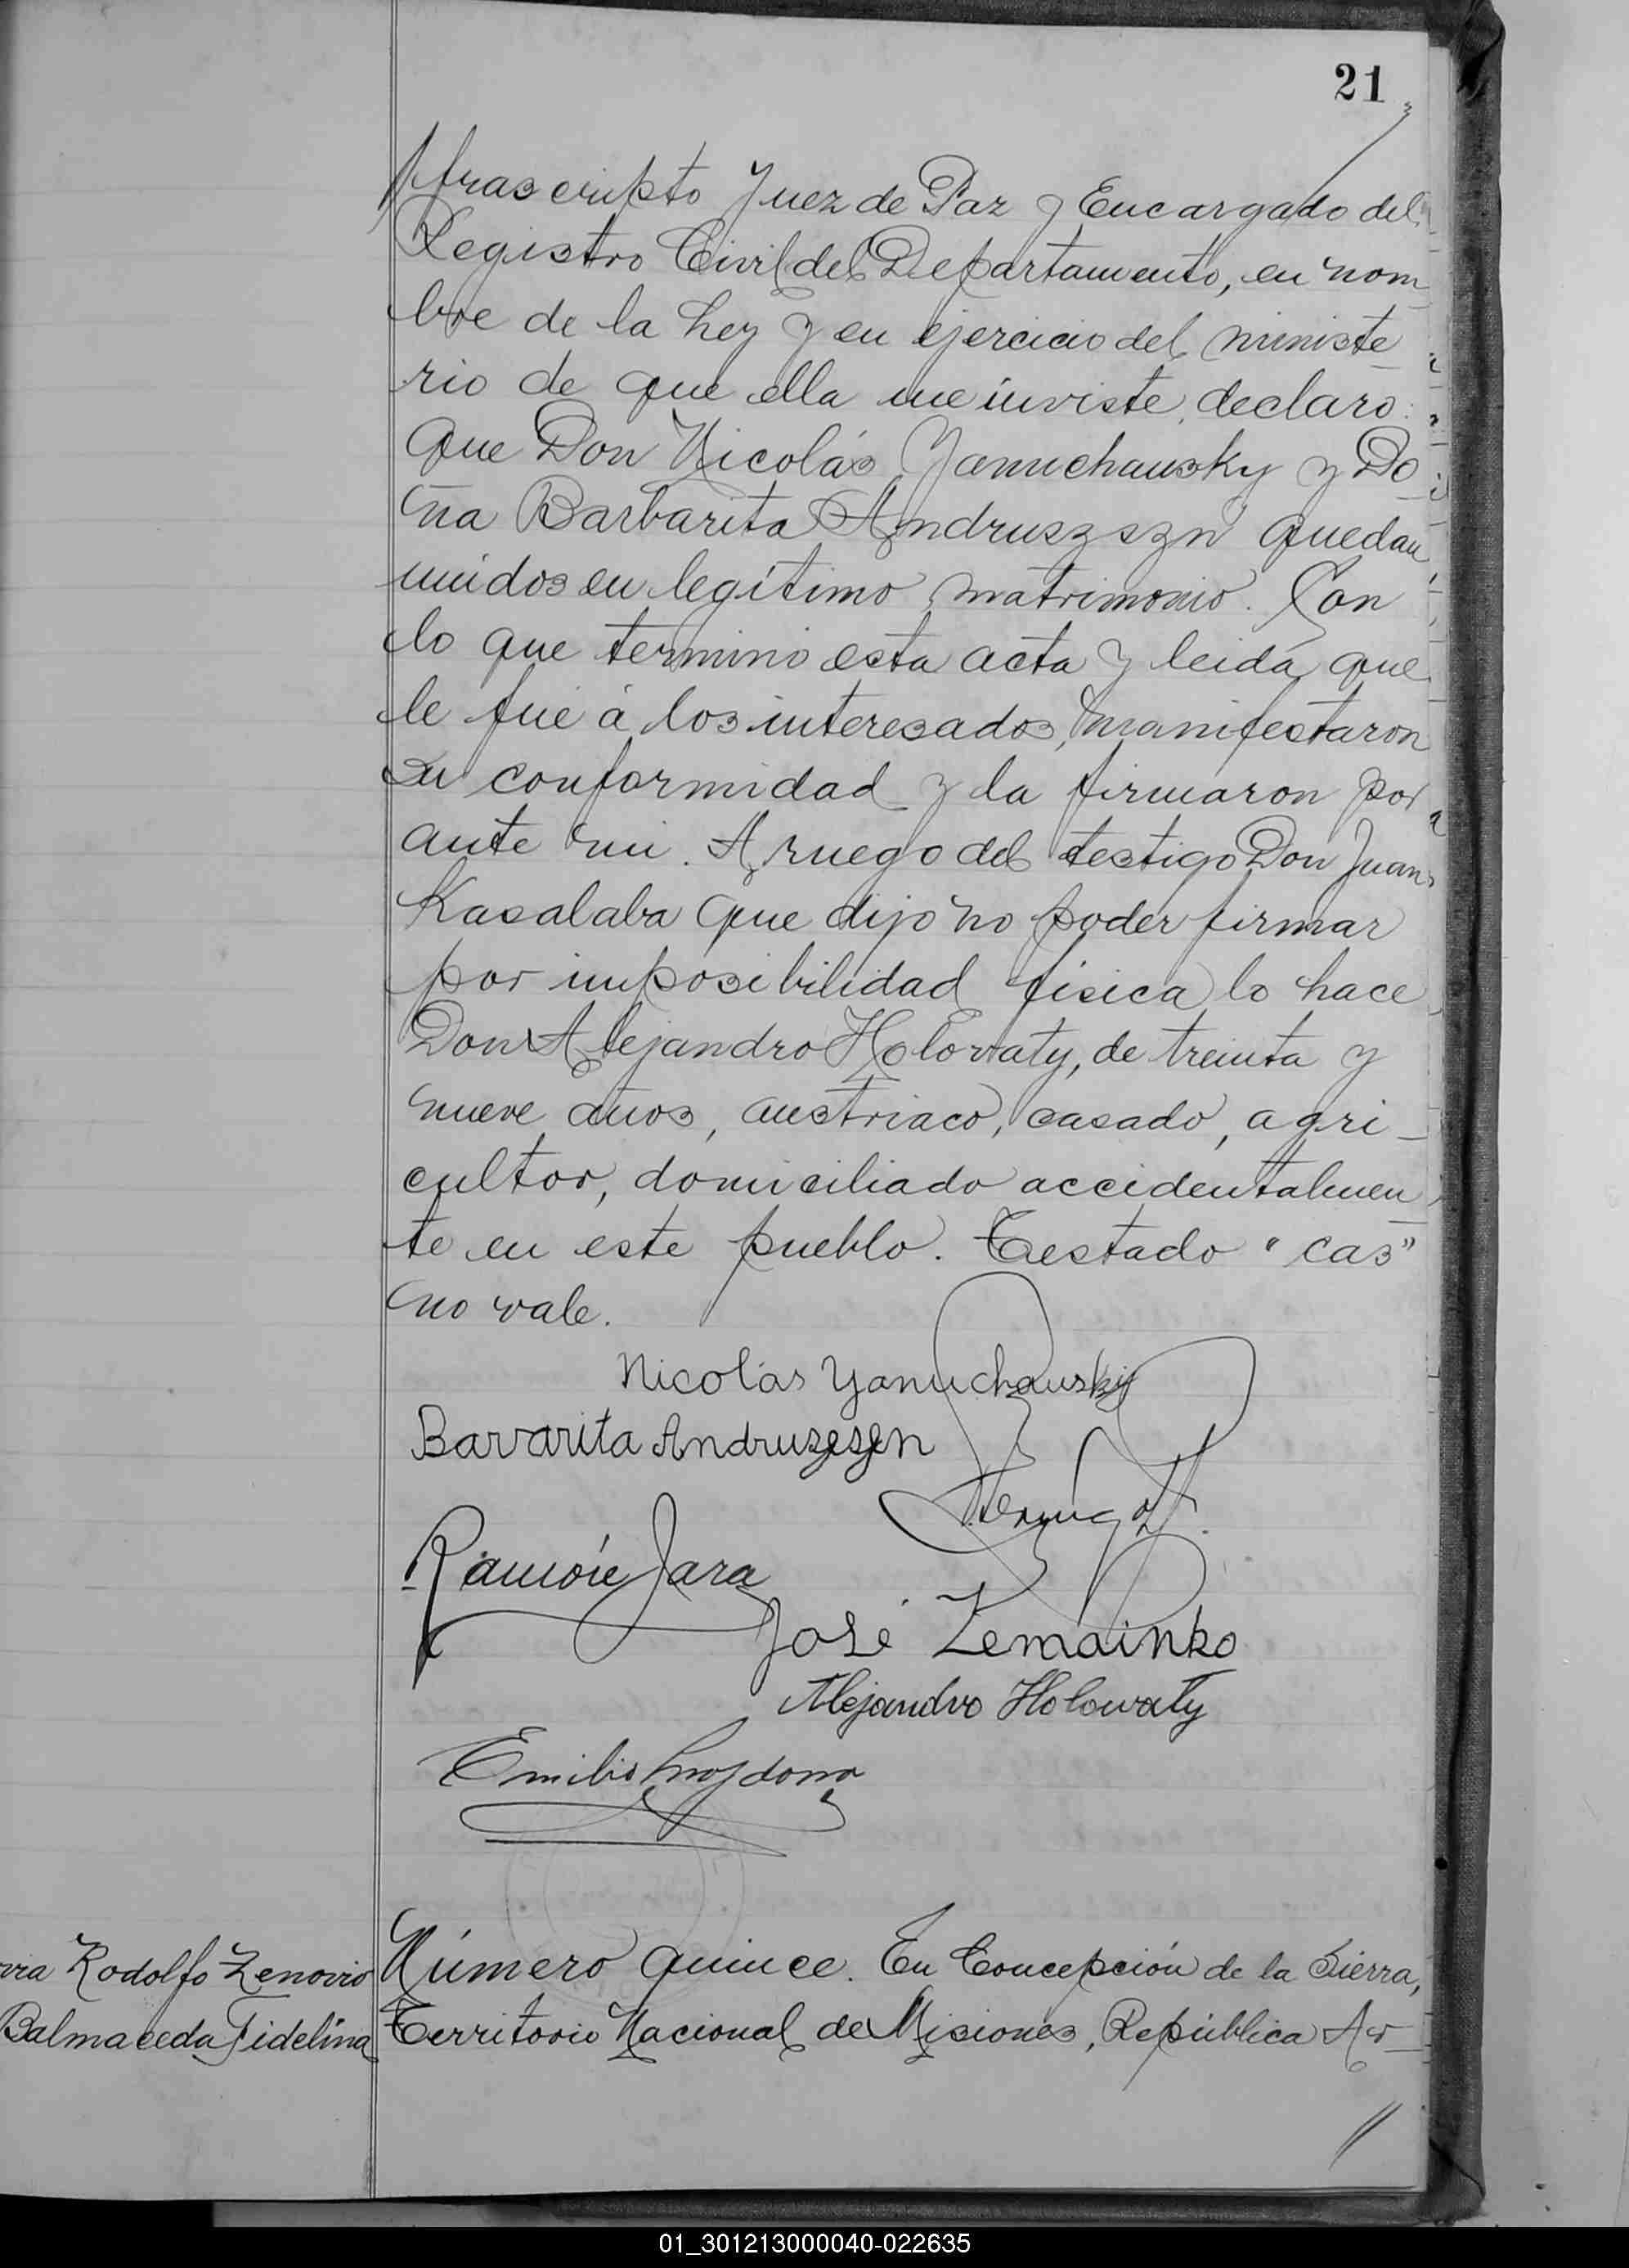 21
frascripto Juez de Paz y Encargado del
Registro Civil del Departamento, en nom
bre de la Ley y en ejercicio del ministe
rio de que ella me inviste, declaro:
que Don Nicolás Yanuchausky y Do
ña Barbarita Andruszszn quedan
unidos en legítimo matrimonio. Con
lo que terminó esta acta y leida que
le fué á los interesados, manifestaron
su conformidad y la firmaron por
ante mi. A ruego del testigo Don Juan
Kasalaba que dijo no poder firmar
por imposibilidad física lo hace
Don Alejandro Holowaty, de treinta y
nueve años, austriaco, casado, agri-
cultor, domiciliado accidentalmen
te en este pueblo. Testado "cas"
no vale.
Nicolás Yanuchausky
Bavarita Andruszszn
Ramón Jara
José Zemainko
Alejandro Holowaty
Emilio
Rodolfo Zenovio
Balmaceda Fidelina
Número quince. En Concepción de la Sierra,
Territorio Nacional de Misiones, República Ar-
01_301213000040-022635